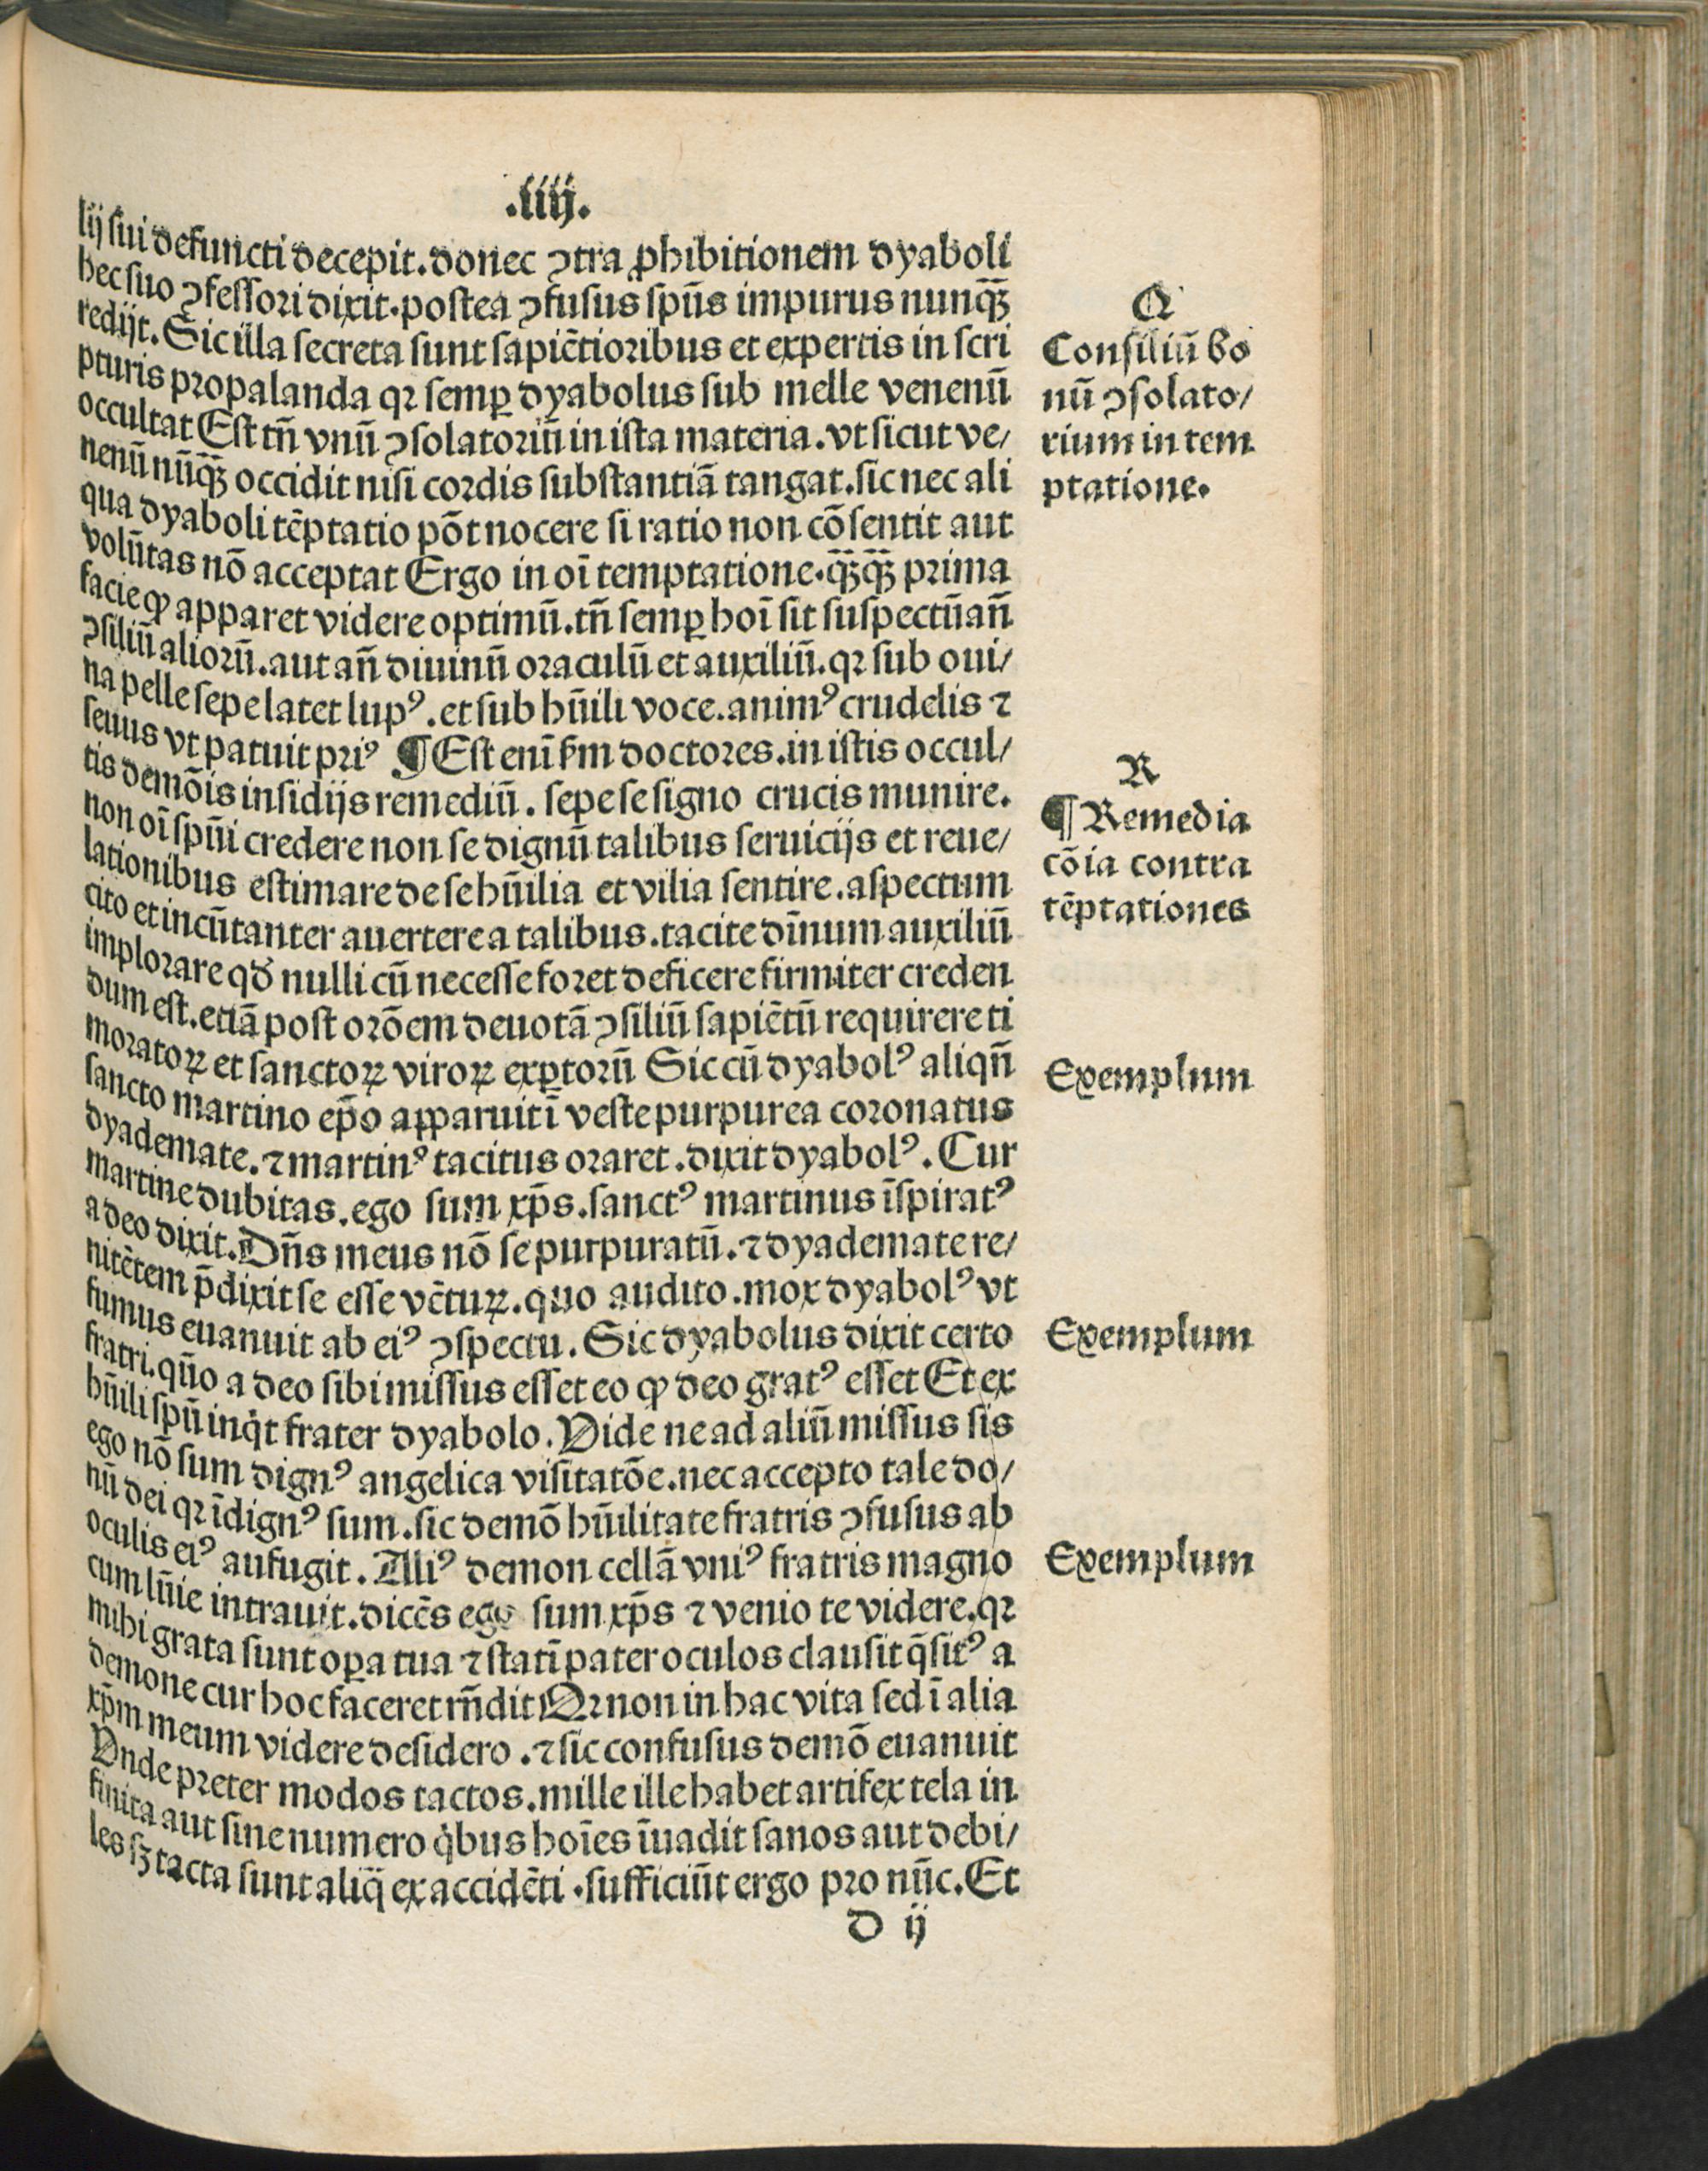 .iiij.
lij sui defuncti decepit. donec ꝯtra ꝓhibitionem dyaboli
hec suo ꝯfessori dixit. postea ꝯfusus spūs impurus nunq̄ꝫ
redijt. Sic illa secreta sunt sapiētioribus et expertis in scri
pturis propalanda qꝛ semꝑ dyabolus sub melle venenū
occultat Est tn̄ vnū ꝯsolatoriū in ista materia. vt sicut ve/
nenū nūq̄ꝫ occidit nisi cordis substantiā tangat. sic nec ali
qua dyaboli tēptatio pōt nocere si ratio non cōsentit aut
volūtas nō acceptat Ergo in oī temptatione. q̄ꝫq̄ꝫ prima
facie ꝙ apparet videre optimū. tn̄ semꝑ hoī sit suspectū an̄
ꝯsiliū aliorū. aut an̄ diuinū oraculū et auxiliū. qꝛ sub oui/
na pelle sepe latet lupꝰ. et sub hūili voce. animꝰ crudelis ⁊
seuus vt patuit priꝰ ¶ Est enī ẜm doctores. in istis occul/
tis demōis insidijs remediū. sepe se signo crucis munire.
non oī spūi credere non se dignū talibus seruicijs et reue/
lationibus estimare de se hūilia et vilia sentire. aspectum
cito et incūtanter auertere a talibus. tacite dīnum auxiliū
implorare qď nulli cū necesse foret deficere firmiter creden
dum est. etiā post orōem deuotā ꝯsiliū sapiētū requirere ti
moratoꝝ et sanctoꝝ viroꝝ exꝑtorū Sic cū dyabolꝰ aliqn̄
sancto martino ep̄o apparuit ī veste purpurea coronatus
dyademate. ⁊ martinꝰ tacitus oraret. dixit dyabolꝰ. Cur
martine dubitas. ego sum xp̄s. sanctꝰ martinus īspiratꝰ
a deo dixit. Dn̄s meus nō se purpuratū. ⁊ dyademate re/
nitētem p̄dixit se esse vētuꝝ. quo audito. mox dyabolꝰ vt
fumus euanuit ab eiꝰ ꝯspectu. Sic dyabolus dixit certo
fratri. quō a deo sibi missus esset eo ꝙ deo gratꝰ esset Et ex
hūili spū inq̇t frater dyabolo. Vide ne ad aliū missus sis
ego nō sum dignꝰ angelica visitatōe. nec accepto tale do/
nū dei qꝛ īdignꝰ sum. sic demō hūilitate fratris ꝯfusus ab
oculis eiꝰ aufugit. Aliꝰ demon cellā vniꝰ fratris magno
cum lūie intrauit. dicēs ego sum xp̄s ⁊ venio te videre. qꝛ
mihi grata sunt oꝑa tua ⁊ statī pater oculos clausit q̄sitꝰ a
demone cur hoc faceret rn̄dit Qꝛ non in hac vita sed ī alia
xp̄m meum videre desidero. ⁊ sic confusus demō euanuit
Vnde preter modos tactos. mille ille habet artifex tela in
finita aut sine numero q̇bus hoīes īuadit sanos aut debi/
les sꝫ tacta sunt aliq̄ ex accidēti. sufficiūt ergo pro nūc. Et
d ij
Q
Consiliū bo
nū ꝯsolato/
rium in tem
ptatione.
R
¶ Remedia
cōia contra
tēptationes
Exemplum
Exemplum
Exemplum